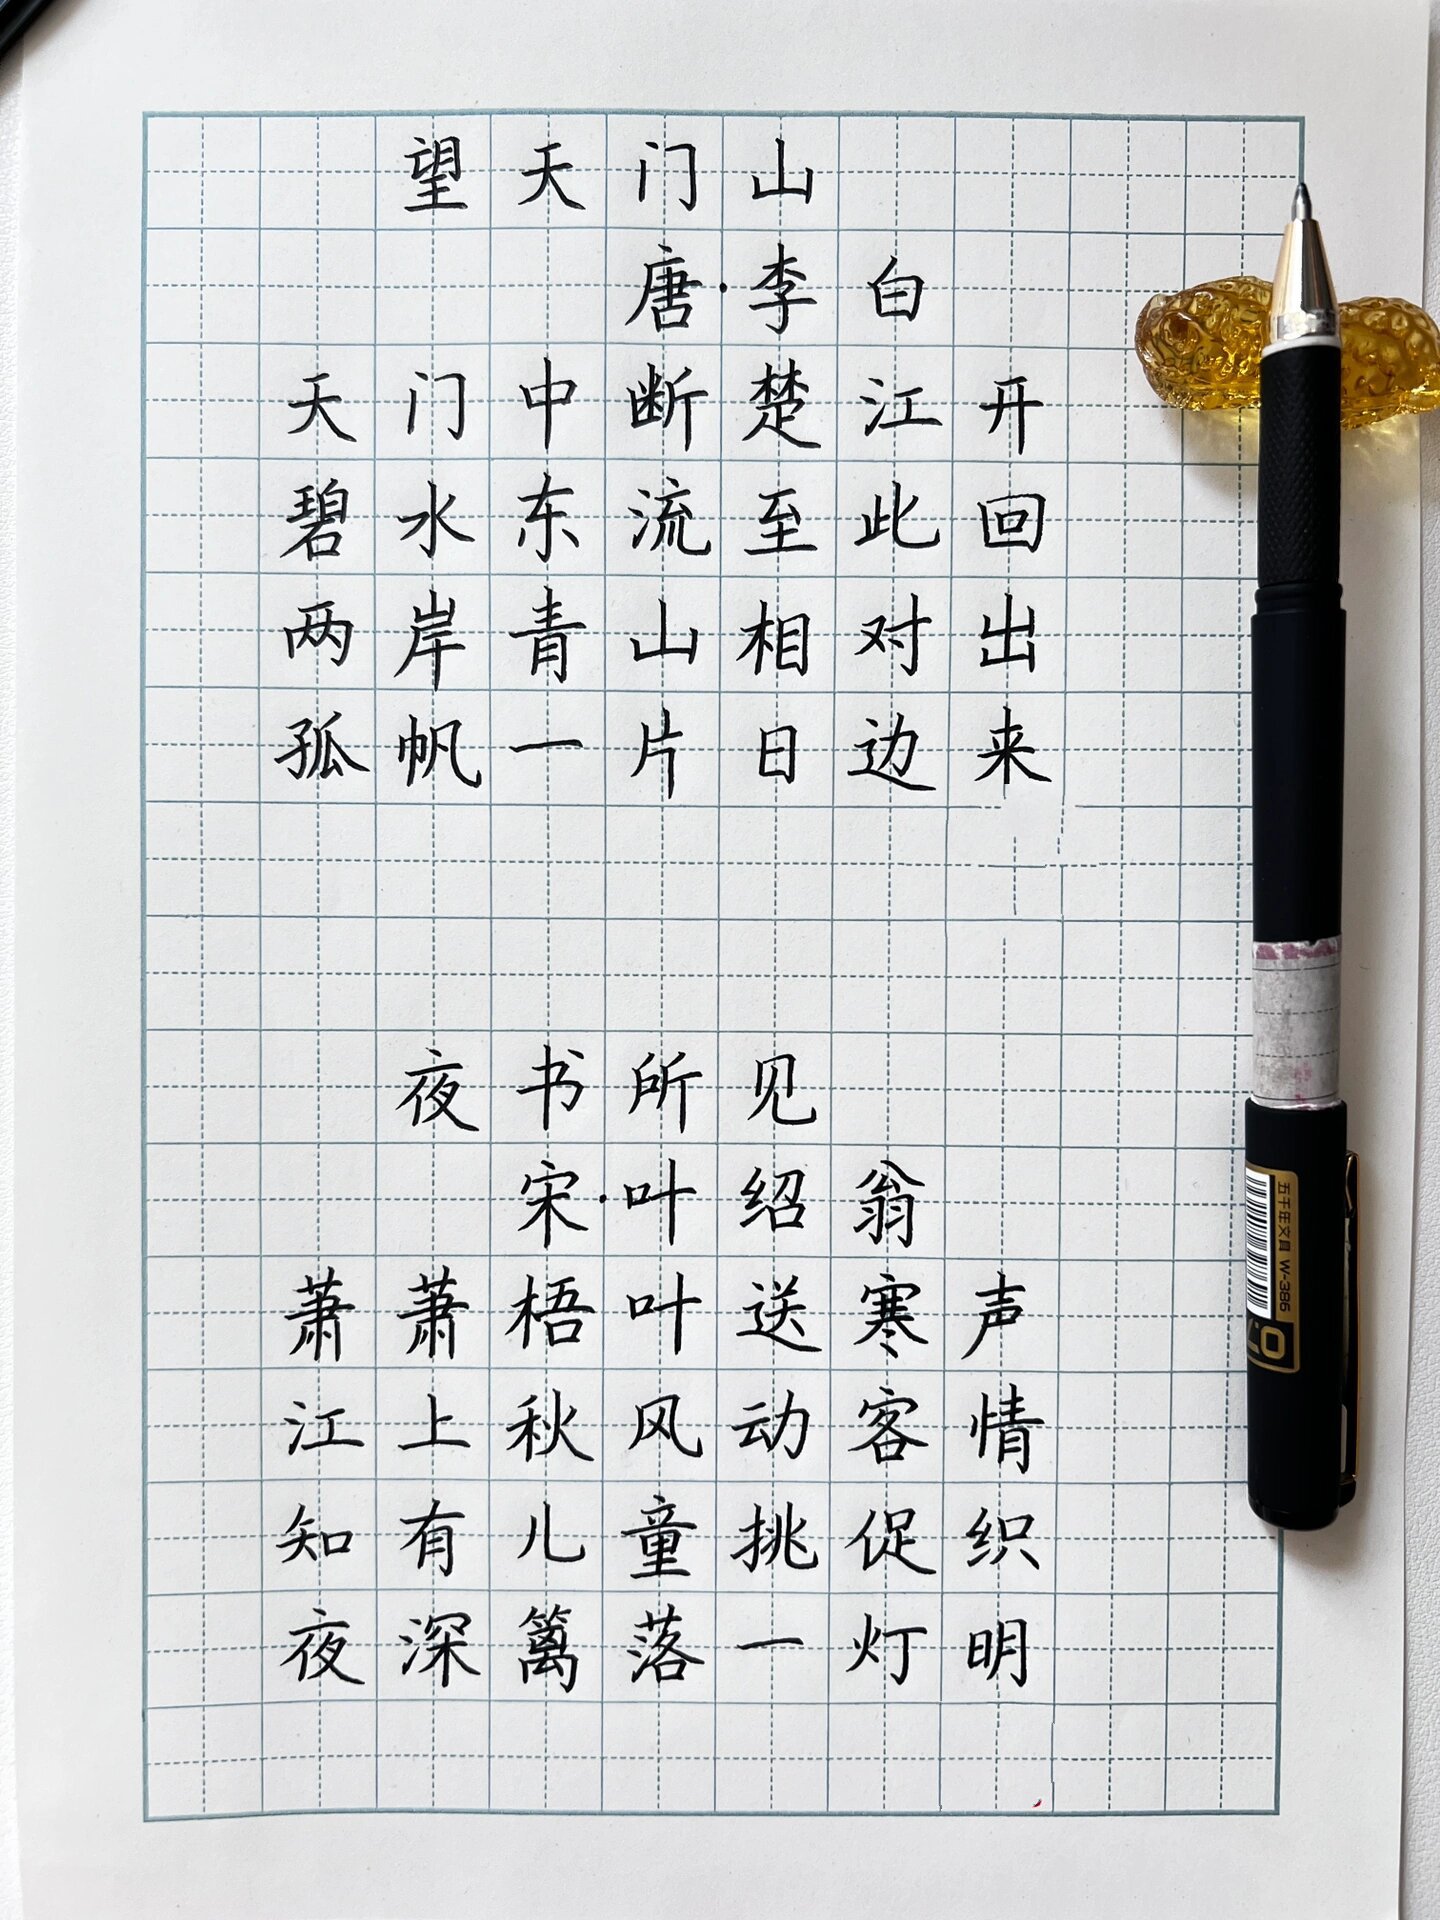 望天门山
唐·李白
天门中断楚江开
碧水中东流至此回
两岸青山相对出
孤帆一片日边来
夜书所见
宋·叶绍翁
萧萧梧叶送寒声
江上秋风动客情
知有儿童挑促织
夜深篱落一灯明
五千年文具 W-386
0.7